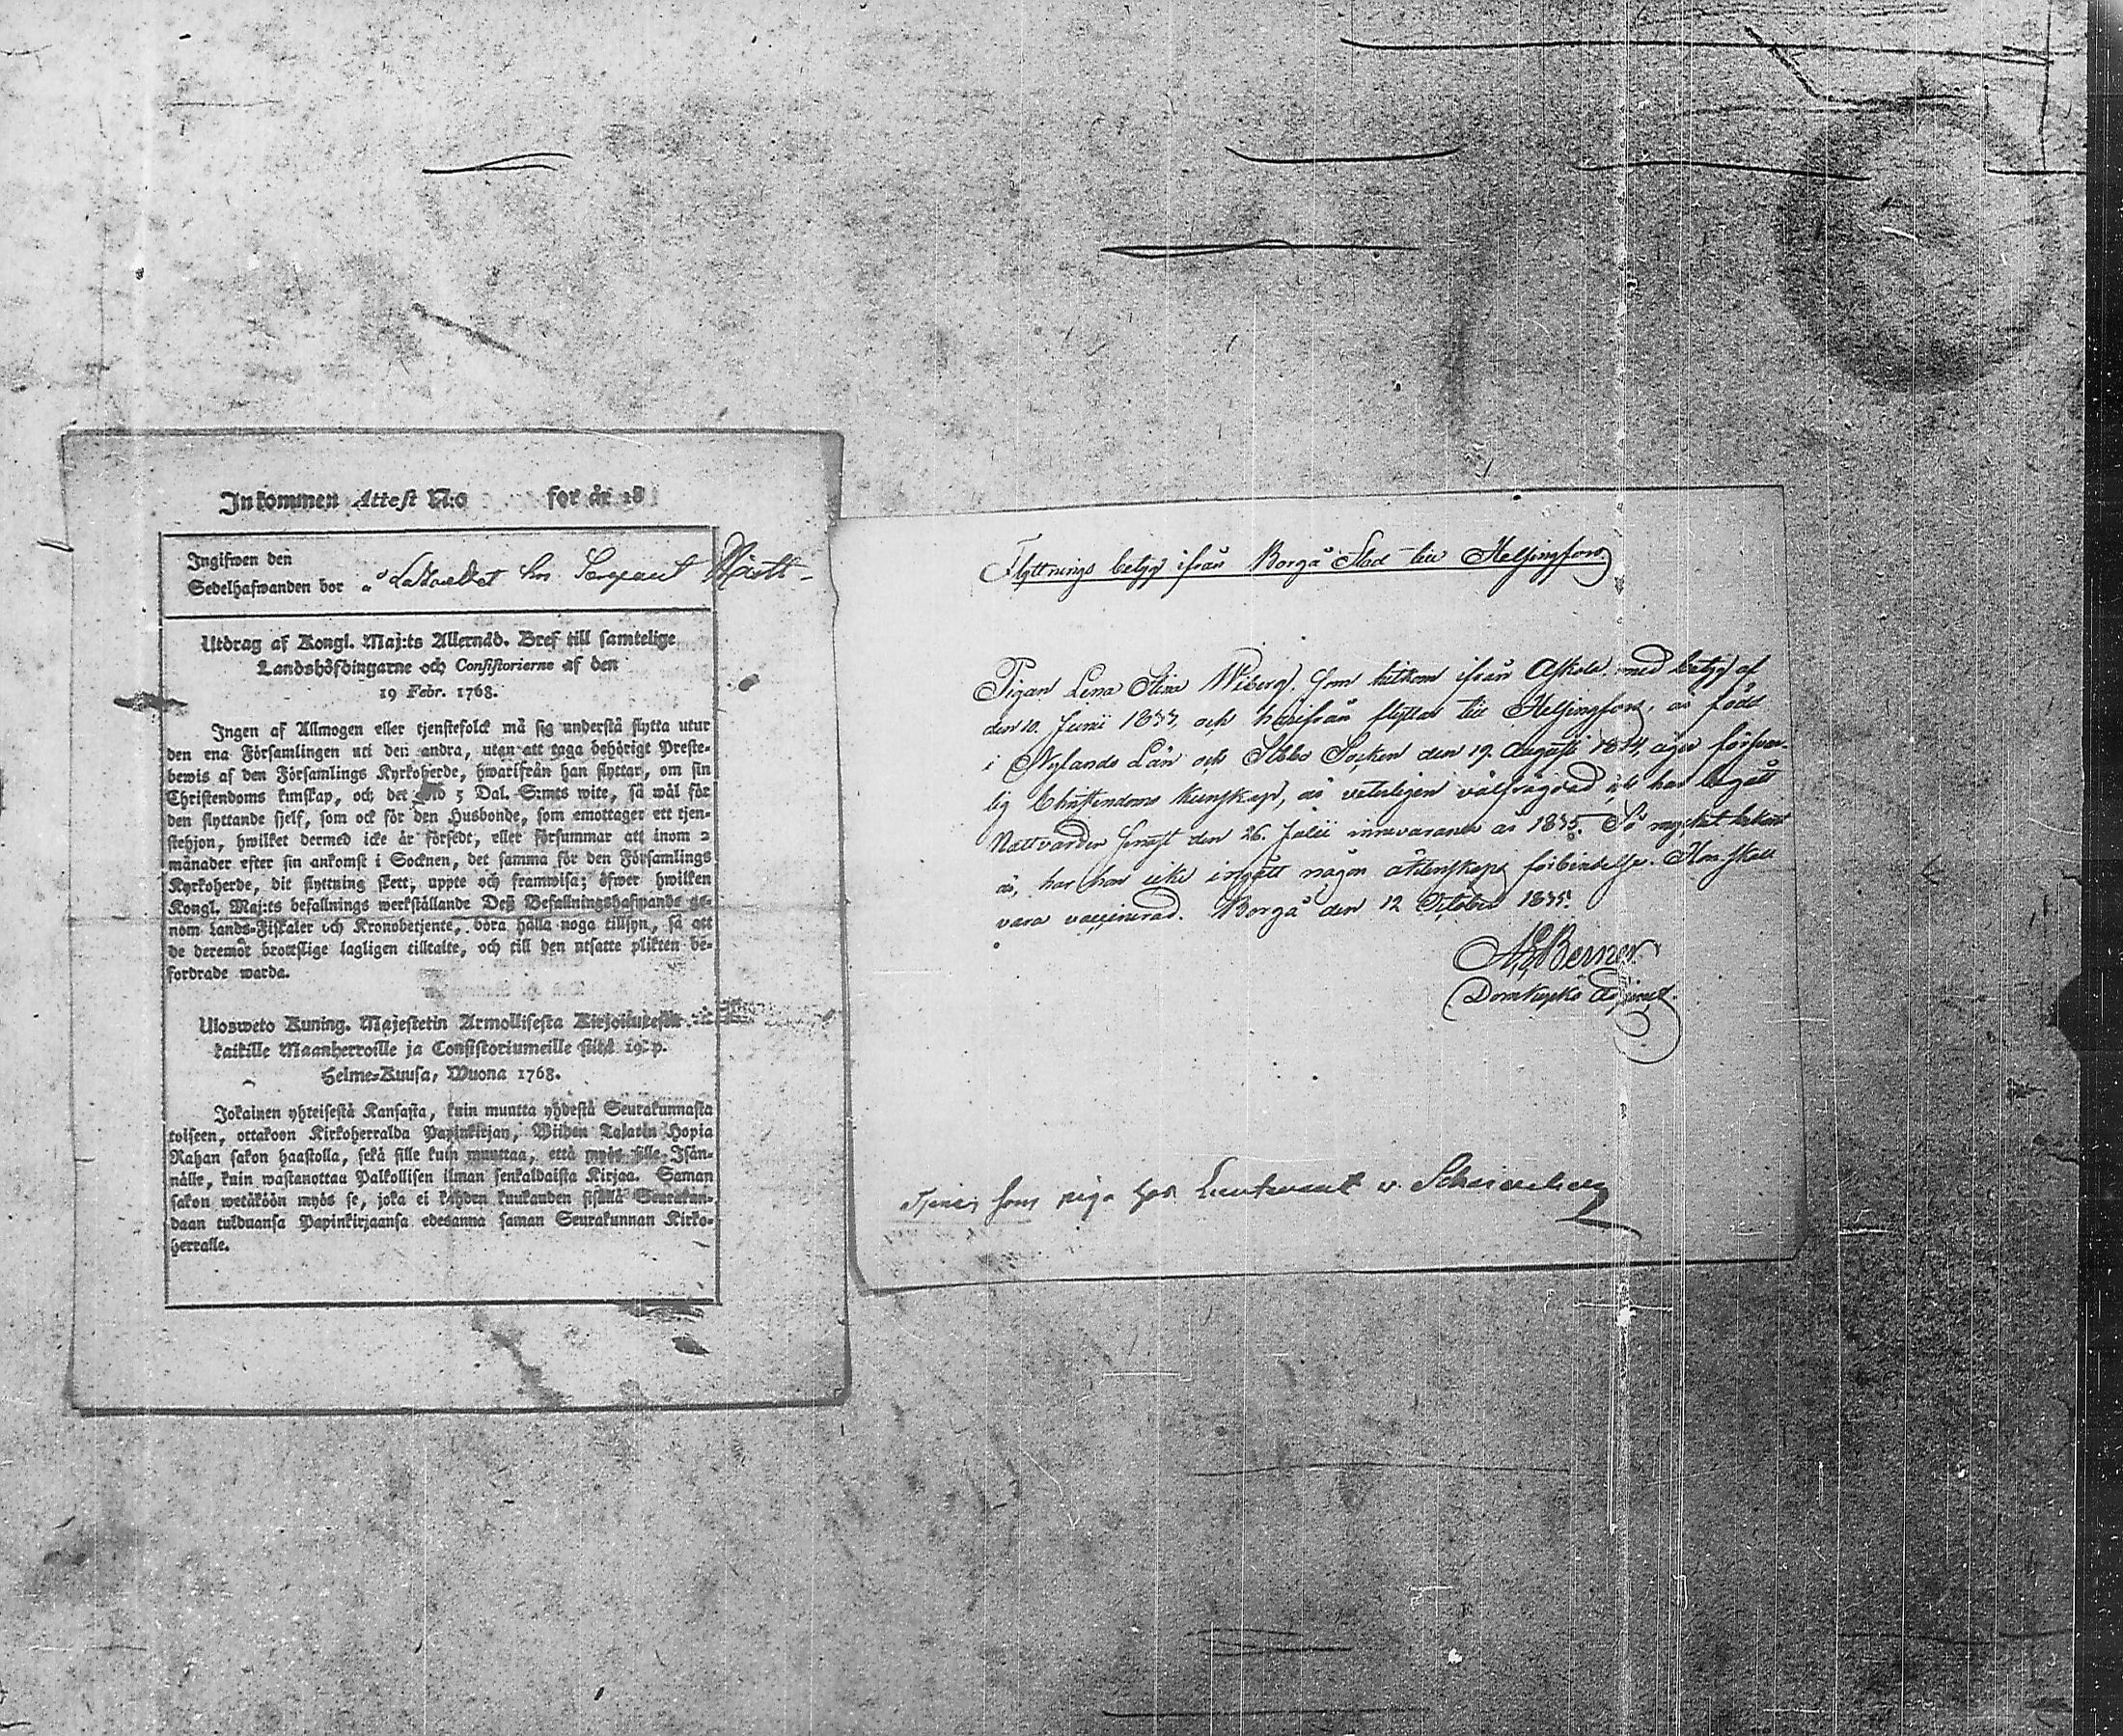 Inkommen Attest N:o för år 18
Ingifwen den
Sedelhafwanden bor hos Sergeant
Utdrag af Kongl. Maj:ts Allernåd. Bref till samtelige
Landshöfdingarne och Consistorierne af den
19 Febr. 1768.
Ingen af Allmogen eller tjenstefolck må sig understå flytta utur
den ena Församlingen uti den andra, utan att taga behörigt Preste-
bewis af den Församlings Kyrkoherde, hwarifrån han flyttar, om sin
Christendoms kunskap, och det wid 5 Dal. S:mts wite, så wäl för
den flyttande sjelf, som ock för den Husbonde, som emottager ett tjen-
stehjon, hwilket dermed icke är försedt, eller försummar att inom 2
månader efter sin ankomst i Socknen, det samma för den Församlings
Kyrkoherde, dit flyttning skett, uppte och framwisa; öfwer hwilken
Kongl. Maj:ts befallnings werkställande Deß Befallningshafwande ge-
nom Lands-Fiskaler och Kronobetjente, böra hålla noga tillsyn, så att
de deremot brottslige lagligen tilltalte, och till den utsatte plikten be-
fordrade warda.
Ulosweto Kuning. Majestetin Armollisesta Kirjoituxesta
kaikille Maanherroille ja Consistoriumeille siitä 19. p.
Helme-Kuusa, Wuona 1768.
Jokainen yhteisestä Kansasta, kuin muutta yhdestä Seurakunnasta
toiseen, ottakoon Kirkoherralda Papinkirjan, Wiiden Talarin Hopia
Rahan sakon haastolla, sekä sille kuin muuttaa, että myös sille Isän-
nälle, kuin wastanottaa Palkollisen ilman senkaldaista Kirjaa. Saman
sakon wetäköön myös se, joka ei kahden kuukauden sisällä Seurakun-
daan tulduansa Papinkirjaansa edesanna saman Seurakunnan Kirko-
herralle.
Flyttnings betyg ifrån Borgå Stad till Helsingfors.
Pigan Lena Stina Wiberg, som hitkom ifrån Askola med betyg af
den 10. Junii 1833 och härifrån flyttar till Helsingfors, är född
i Nylands Län och Socken den 19. Augusti 1814, äger försvar-
lig Christendoms kunskap, är veterligen välfrägdad, och har begått
Nattvarden senast den 26. Julii innevarande år 1835. Så mycket bekant
är, har hon icke ingått någon äktenskaps förbindelse. Hon skall
vara vaccinerad. Borgå den 12 October 1835.
Berner
Domkyrko Adjunct.
som piga hos Lieutenant v.